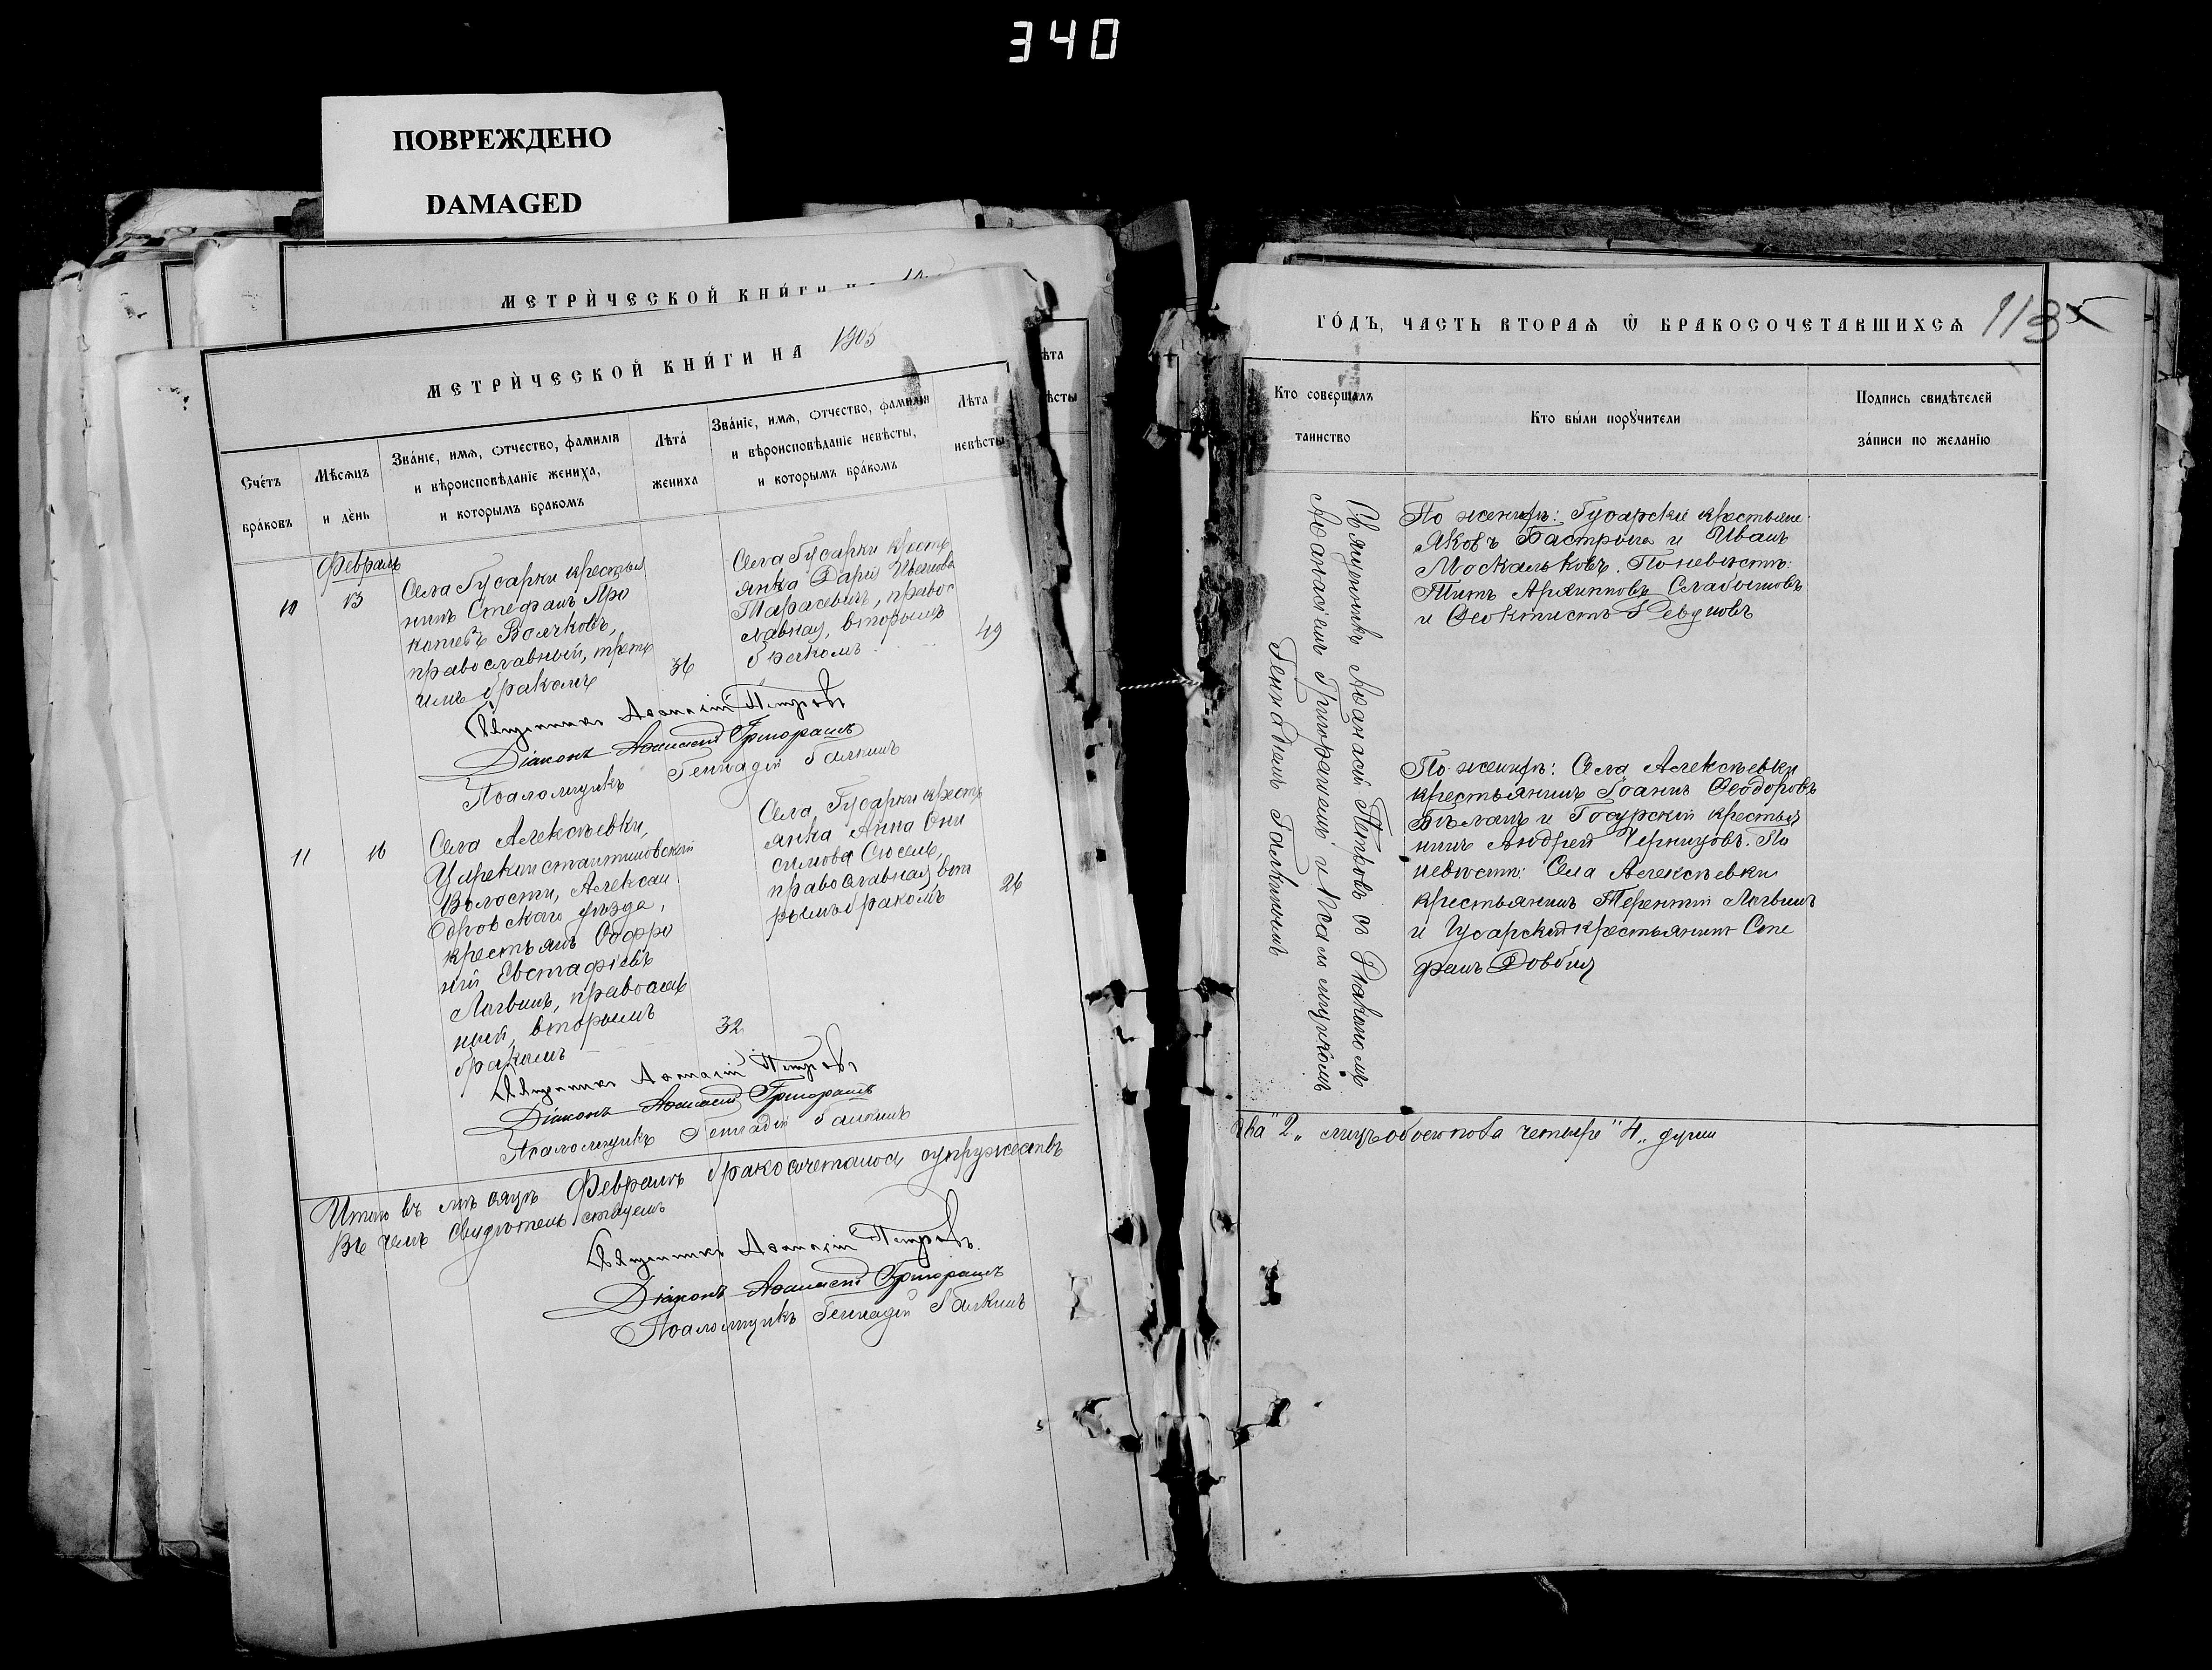 340
ПОВРЕЖДЕНО
DAMAGED
МЕТРИЧЕСКОЙ КНИГИ
МЕТРИЧЕСКОЙ КНИГИ НА 1905
Счетъ
браковъ
Мѣсяцъ
и день
Званіе, имя, отчество, фамилія
и вѣроисповѣданіе жениха,
и которымъ бракомъ
Лѣта
жениха
Званіе, имя, отчество, фамилія
и вѣроисповѣданіе невѣсты,
и которымъ бракомъ
Лѣта
невѣсты
Февраль
10
13
Села Гусарки крестья
нинъ Стефанъ Про
копіевъ Волчковъ,
православный, треть
имъ бракомъ
36
Села Гусарки кресть
янка Дарія Иванова
Тарасевичъ, правос
лавная, вторымъ
бракомъ
49
Священникъ Аѳанасій Петровъ
Діаконъ Аѳанасій Григорашъ
Псаломщикъ Геннадій Галкинъ
11
16
Села Алексѣевки,
Цареконстантиновской
Волости, Алексан
дровскаго уѣзда,
крестьянъ
Евстафіевъ
Логвинъ, правосла
ный, вторымъ
бракомъ
32
Села Гусарки кресть
янка Анна Они
симова
православная, вто
рымъ бракомъ
26
Священникъ Аѳанасій Петровъ
Діаконъ Аѳанасій Григорашъ
Псаломщикъ Геннадій Галкинъ
Итого въ мѣсяцѣ Февралѣ бракосочеталось супружествъ
Въ чемъ свидѣтельствуемъ
Священникъ Аѳанасій Петровъ.
Діаконъ Аѳанасій Григорашъ
Псаломщикъ Геннадій Галкинъ
ГОДЪ, ЧАСТЬ ВТОРАЯ Ѿ БРАКОСОЧЕТАВШИХСЯ
113
Кто совершалъ
таинство
Кто были поручители
Подпись свидѣтелей
записи по желанію
Священникъ Аѳанасій Петровъ съ Діакономъ
Аѳанасіемъ Григорашемъ и Псаломщикомъ
Геннадіемъ Галкинымъ
По женихѣ: Гусарскіе крестьяне
Яковъ Бастрыга и Иванъ
Москальковъ. По невѣстѣ:
Титъ Архипповъ Слабошовъ
и Ѳеоктистъ Ревуновъ
По женихѣ: Села Алексѣевки
крестьянинъ Іоаннъ Ѳеодоровъ
Бѣланъ и Гусарскій крестья
нинъ Андрей Черницовъ. По
невѣстѣ: Села Алексѣевки
крестьянинъ Терентій Логвинъ
и Гусарскій крестьянинъ Сте
фанъ Довбня
два "2" лицъ обоего пола четыре "4" души